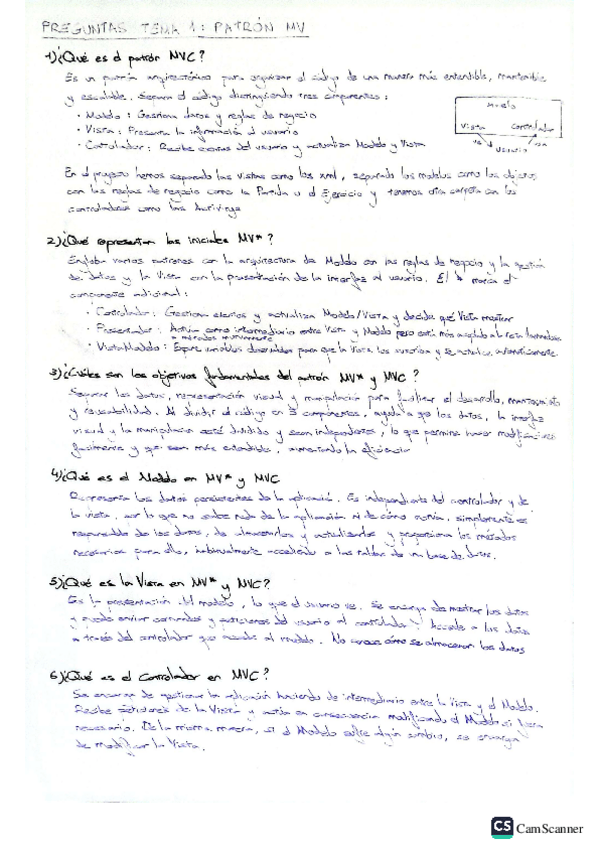 PREGUNTAS TEMA 1: PATRÓN MV
1) ¿Qué es el patrón MVC?
Es un patrón arquitectónico para organizar el código de una manera más entendible, mantenible
y escalable. Separa el código distinguiendo tres componentes:
· Modelo: Gestiona datos y reglas de negocio
· Vista: Presenta la información al usuario
· Controlador: Recibe del usuario y actualiza Modelo y Vista
Modelo
Vista Controlador
Usuario
En el proyecto hemos separado las vistas como los xml, separado los modelos como los objetos
con las reglas de negocio como la Partida o el Ejercicio y tenemos otra carpeta con los
controladores como las
2) ¿Qué representan las iniciales MV*?
Engloba varios patrones con la arquitectura de Modelo con las reglas de negocio y la gestión
de datos y la Vista con la presentación de la interfaz al usuario. El * marca el
componente adicional:
· Controlador: Gestiona eventos y actualiza Modelo/Vista y decide qué Vista mostrar
· Presentador: Actúa como intermediario entre Vista y Modelo pero está más acoplado a la
· VistaModelo: para que la Vista los y se actualice automáticamente.
3) ¿Cuáles son los objetivos fundamentales del patrón MV* y MVC?
Separar los datos, representación visual y manipulación para facilitar el desarrollo, mantenimiento
y reusabilidad. Al dividir el código en 3 componentes, ayuda a que los datos, la interfaz
visual y la manipulación esté dividido y sean independientes, lo que permite hacer modificaciones
fácilmente y que sean más entendible, aumentando la eficiencia
4) ¿Qué es el Modelo en MV* y MVC
Representa los datos persistentes de la aplicación. Es independiente del controlador y de
la vista, por lo que no sabe nada de la aplicación ni de cómo simplemente es
responsable de los datos, de almacenarlos y actualizarlos y proporciona los métodos
necesarios para ello, habitualmente accediendo a las tablas de un base de datos.
5) ¿Qué es la Vista en MV* y MVC?
Es la presentación del modelo, lo que el usuario ve. Se encarga de mostrar los datos
y puede enviar comandos y peticiones del usuario al controlador. Accede a los datos
a través del controlador que accede al modelo. No conoce cómo se almacenan los datos
6) ¿Qué es el Controlador en MVC?
Se encarga de gestionar la aplicación haciendo de intermediario entre la Vista y el Modelo.
Recibe peticiones de la Vista y actúa en consecuencia modificando el Modelo si fuera
necesario. De la misma manera, si el Modelo sufre algún cambio, se encarga
de modificar la Vista.
CS CamScanner